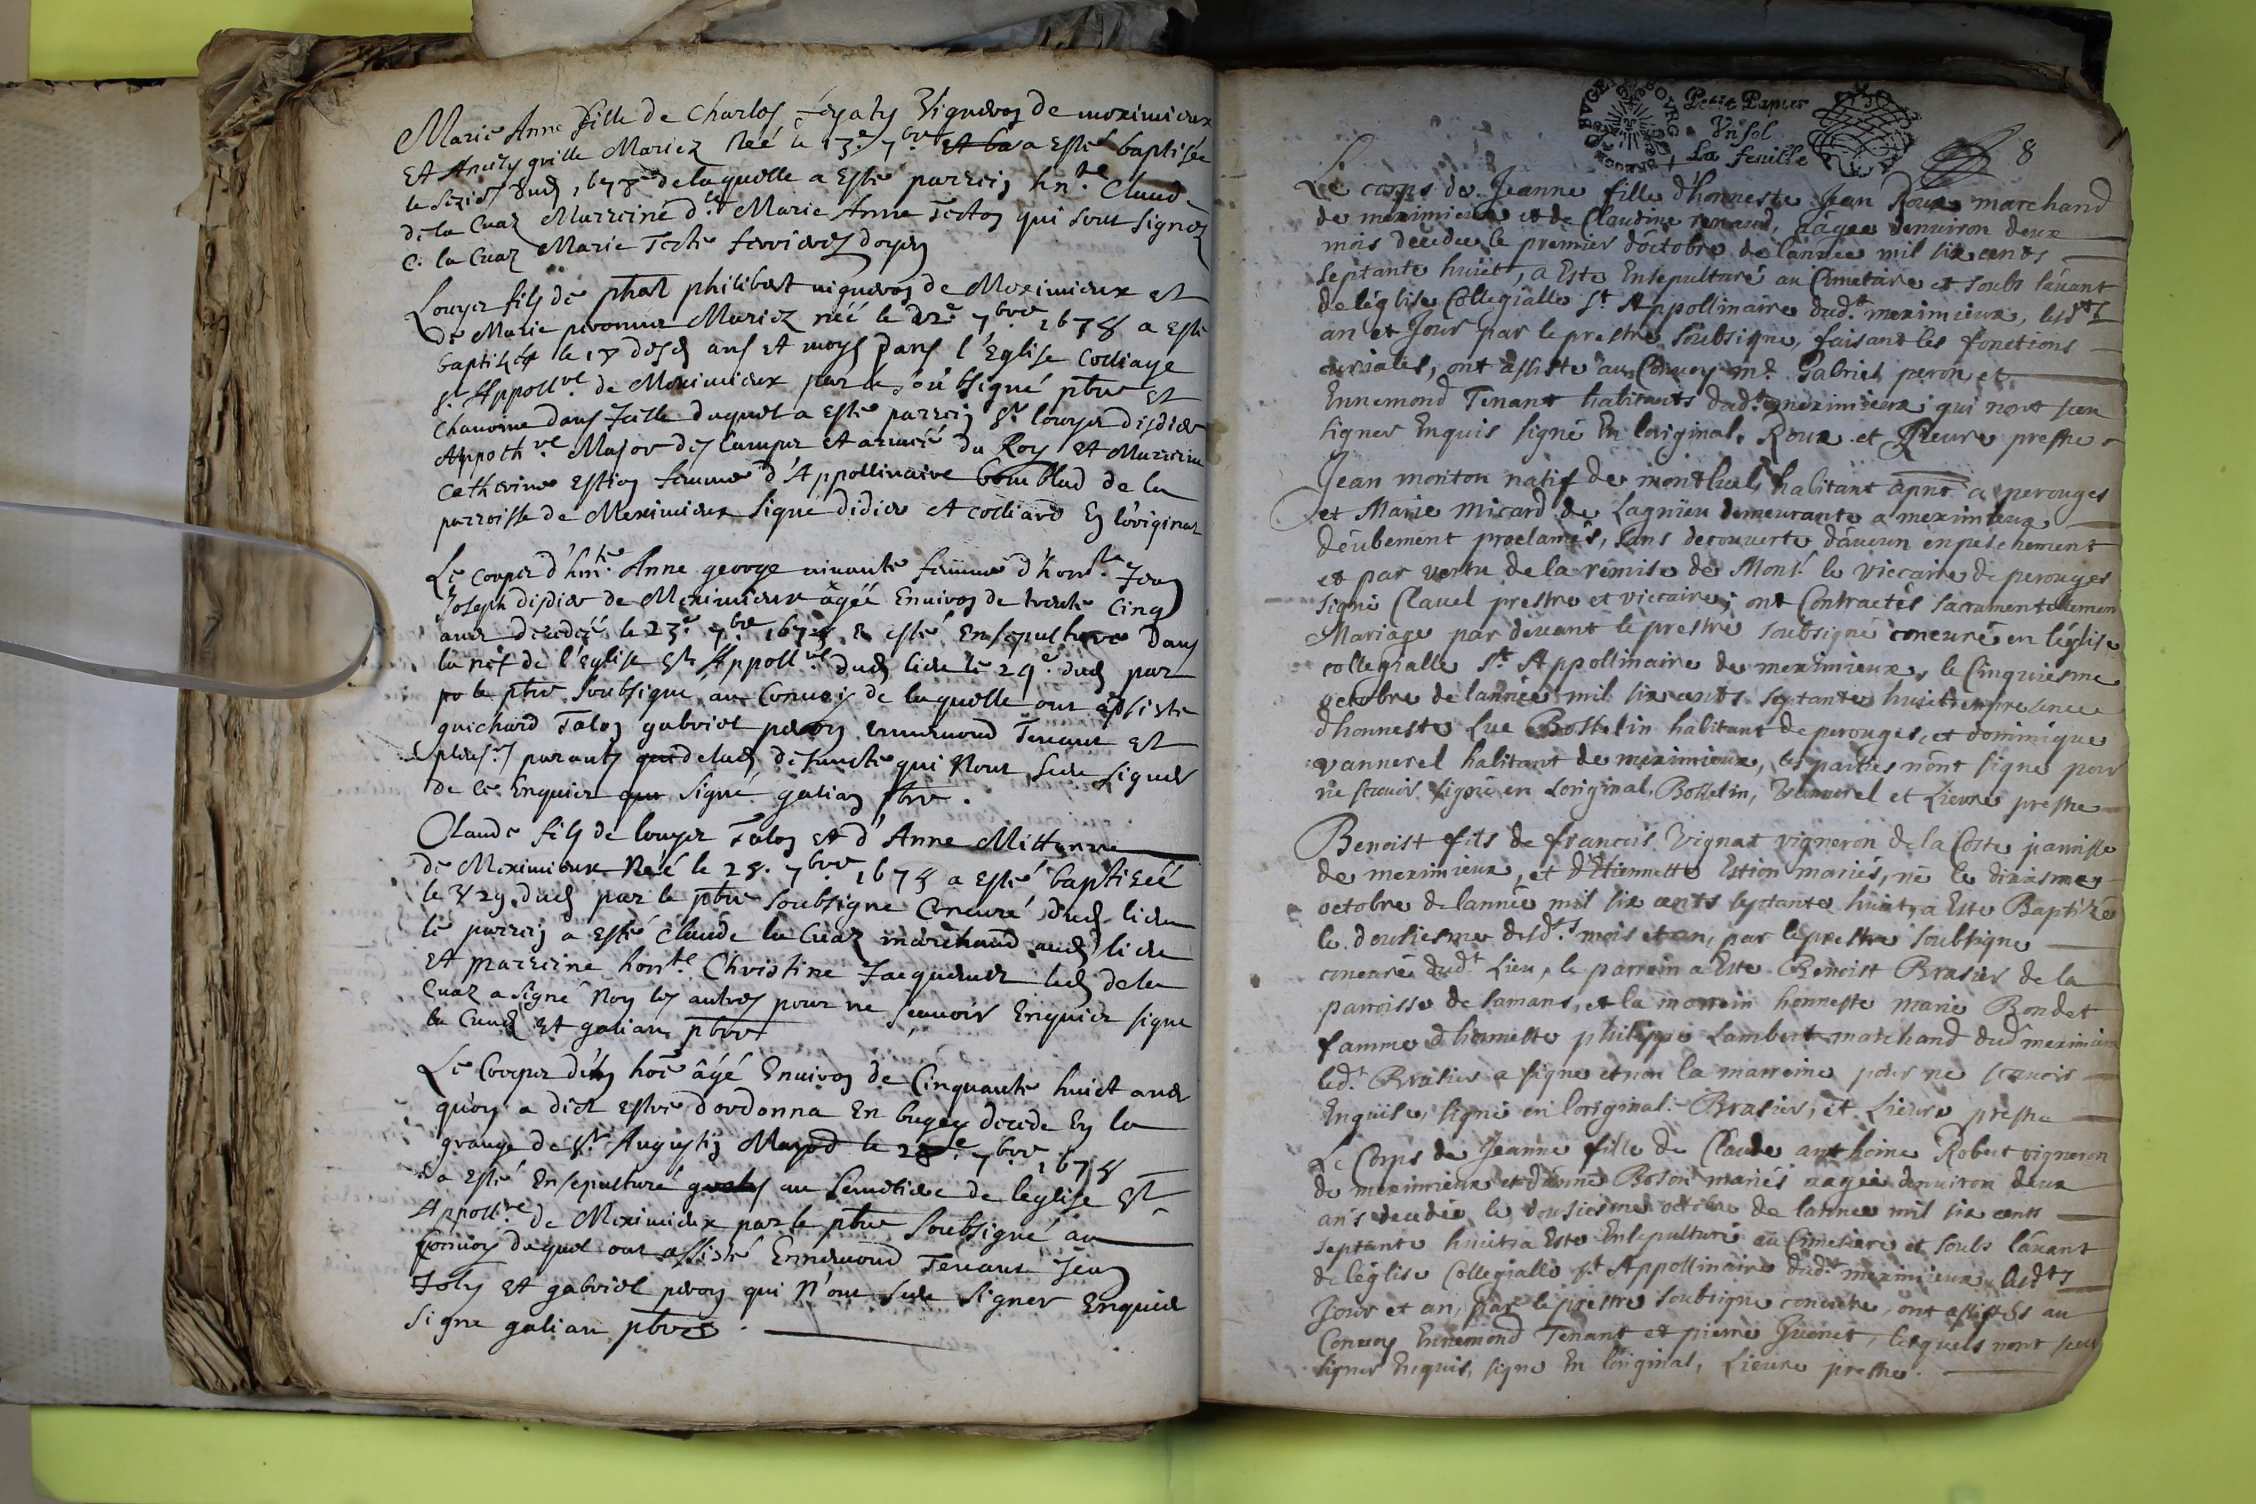 Marie Anne fille de Charles Vigneron de meximieux
Et mariez Neé le 13.e 7.bre Et ba a esté baptisée
le 1678 de laquelle a Esté parrein hn.te Claude
de la Cuaz Marreine d.lle Marie Anne qui sont signez
C. la Cuaz Marie doyen
Louys fils de phal philibert vigneron de Meximieux et
de Marie Mariez néé le 7bre 1678 a esté
baptisé le 17 desd ans et moys dans l'Eglise
st Appoll.re de Meximieux par le soubsigné pbre Et
Chanoine dans Icelle duquel a esté parrein Sr louys disdier
Appoth.re Major des Camps et armeé du Roy Et Marreine
Catherine Estion femme d'Appollinaire de la
parroisse de Meximieux Signé didier et En l'original
Le Corps d'hn.te Anne george vivante femme d'hon.te Jean
Joseph disdier de Meximieux âgéé Environ de trente Cinq
ans decedéé le 23.e 7.bre 1678 a esté Ensepulture dans
la nef de l'Eglise St Appoll.re dud lieu le 24.e dud par
po le pbre soubsigné au Convoy de laquelle ont assisté
guichard Talon gabriel peron ennemond Tenant Et
plus.rs parants de lad defuncte qui Nont sceu signer
de ce Enquier signé galian pbre.
Claude fils de louys Talon Et d'Anne Mittonne
de Meximieux Neé le 28. 7bre 1678 a Esté baptizéé
le 29. dud par le pbre soubsigné Concuré dud lieu
le parrein a esté Claude la Cuaz marchand aud lieu
Et marreine hon.te Christine Jacquemet led de la
Cuaz a signé Non les autres pour ne scauoir Enquier signé
la Cuaz Et galian pbre
Le Corps d'un hoe âgé Enuiron de Cinquante huict ans
qu'on a dict estre d'ordonna En bugey decede En la
grange de Sr Augustin le 28.e 7bre 1678
a Esté Ensepulturé au Cemetiere de leglise St
Appoll.re de Meximieux par le pbre soubsigné au
Convoy duquel ont assisté Ennemond Tenant Jean
Joly Et gabriel peron qui N'ont sceu signer Enquier
signé galian pbre.
Petit Papier
Un sol
La feuille
8
Le corps de Jeanne fille d'honneste Jean Roux marchand
de meximieux et de Claudine renaud, aâgee denuiron deux
mois decedee le premier d'octobre de lannee mil six cents
septante huict, a Este Ensepulturé au Cimetiere et soubs lauant
de léglise Collegialle St Appollinaire dud.t meximieux, lesd.ts
an et Jour par le prestre soubsigné, faisant les fonctions
curiales, ont assisté au Conuoy m.e Gabriel peron et
Ennemond Tenant habitants dud.t meximieux qui nont sceu
signer Enquis signé En loriginal, Roux et Lieure prestre
Jean monton natif de montluel, habitant apnt a perouges
et Marie Micard de Lagnieu demeurante a meximieux
deubement proclamés, sans decouverte daucun enpeschement
et par vertu de la remise de Mons.r le viccaire de perouges
signé Clauel prestre et viccaire; ont Contractés sacramentellemen
Mariage par deuant le prestre soubsigné concuré en léglise
collegialle St Appollinaire de meximieux, le Cinquiesme
octobre de lannée mil six cents septante huict en presence
d'honneste Luc Bottelin habitant de perouges, et dominique
vannerel habitant de meximieux, les parties nont signé pour
ne scauoir signé en Loriginal, Bottelin, Vannerel et Lieure prestre
Benoist fils de francois Vignat vigneron de la Coste parroisse
de meximieux, et d'Etiennette Estion mariés, né le dixiesme
octobre de lannée mil six cents septante huict, a Este Baptizé
le dousiesme desd.ts mois et an, par le prestre soubsigné
concuré dud.t Lieu, le parrein a Este Benoist Brasier de la
parroisse de Samans, et la marrein honneste Marie Bondet
famme d'honneste philippe Lambert marchand dud.t meximieux
led.t Brasier a signé et non la marreine pour ne scauoir
Enquise, signé en loriginal. Brasier, et Lieure prestre
Le Corps de Jeanne fille de Claude anthoine Robert vigneron
de meximieux et d'Anne Boson mariés aagée denuiron deux
ans decedée le dousiesme octobre de lannee mil six cents
septante huict, a Este Ensepulturé au Cimetiere et soubs lauant
de léglise Collegialle st Appollinaire dud.t meximieux lesd.ts
Jour et an, par le prestre soubsigné concuré, ont assistés au
Conuoy Ennemond Tenant et pierre Guenet, lesquels nont sceu
signer Enquis, signé En loriginal, Lieure prestre.